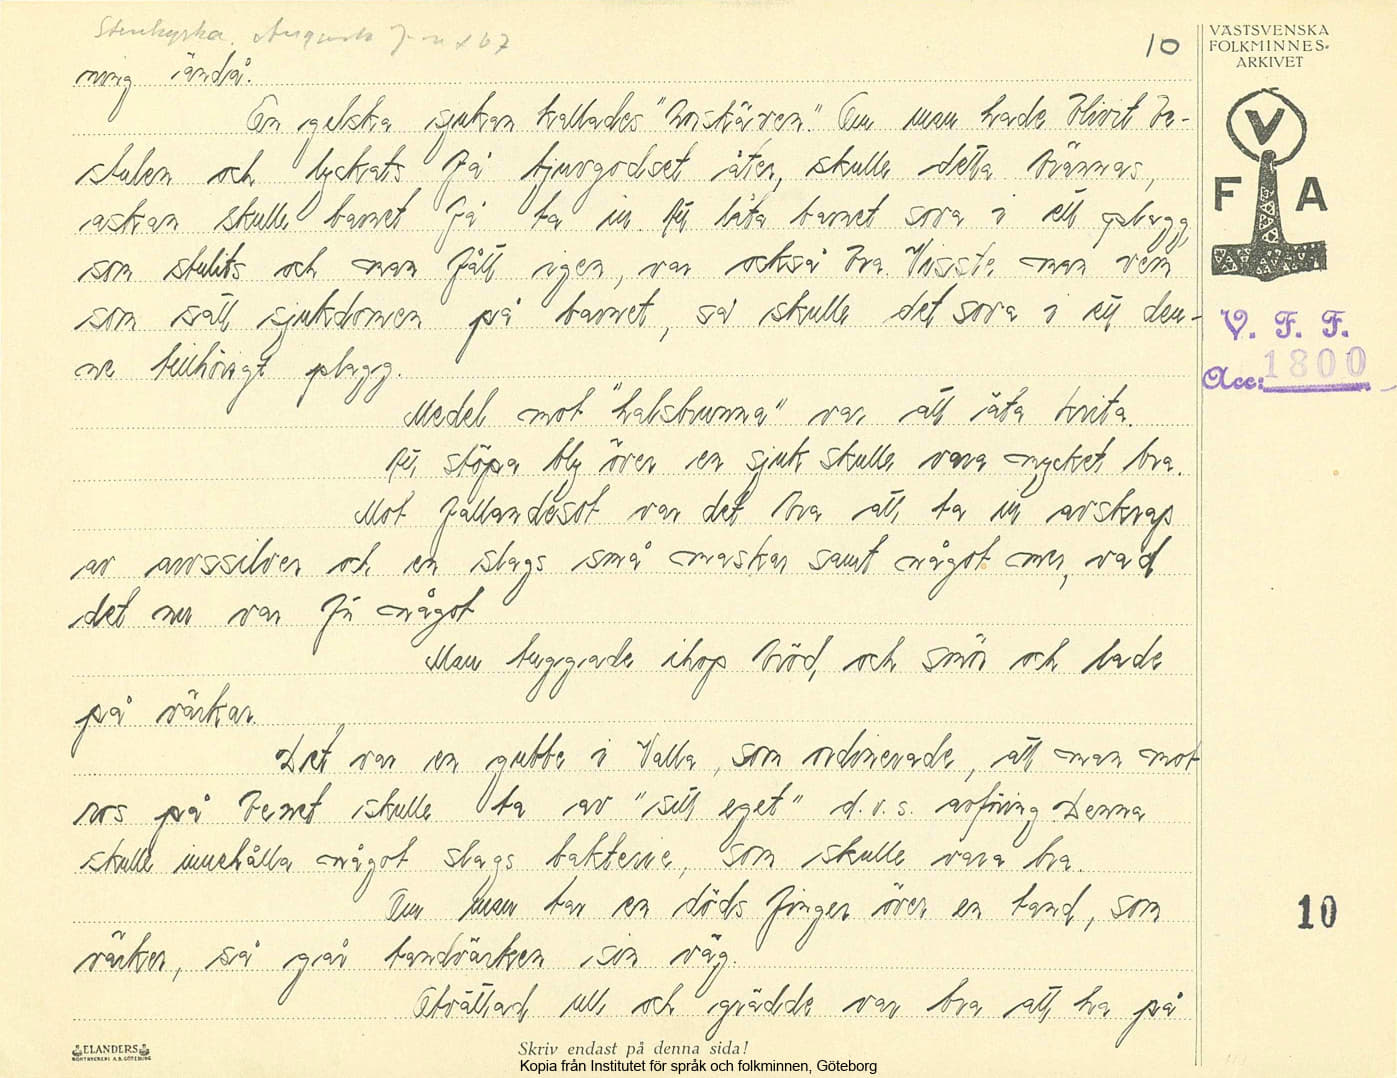 Stenkyrka.
10
VÄSTSVENSKA
FOLKMINNES-
ARKIVET
ning ändå.
Engelska sjukan kallades "Norskärven." Om man hade blivit be-
stulen och lyckats få tjuvgodset åter, skulle detta brännas,
askan skulle barnet få ta in. Att låta barnet sova i ett plagg,
som stulits och man fått igen, var också bra. Visste man vem
som satt sjukdomen på barnet, så skulle det sova i ett den-
ne tillhörigt plagg.
Medel mot "halsbrunna" var att äta krita.
Att stöpa bly över en sjuk skulle vara mycket bra.
Mot fallandesot var det bra att ta in avskrap
av arvssilver och en slags små maskar samt något mer, vad
det nu var för något
Man tuggade ihop bröd, och smör och lade
på värkar.
Det var en gubbe i Valla, som ordinerade, att man mot
ros på benet skulle ta av "sitt eget" d.v.s. avföring. Denna
skulle innehålla något slags bakterie, som skulle vara bra.
Om man tar en döds finger över en tand, som
värker, så går tandvärken sin väg.
Otvättad ull och grädde var bra att ha på
V
F A
V. F. F.
Acc: 1800
10
ELANDERS
BOKTRYCKERI A.B. GÖTEBORG
Skriv endast på denna sida!
Kopia från Institutet för språk och folkminnen, Göteborg